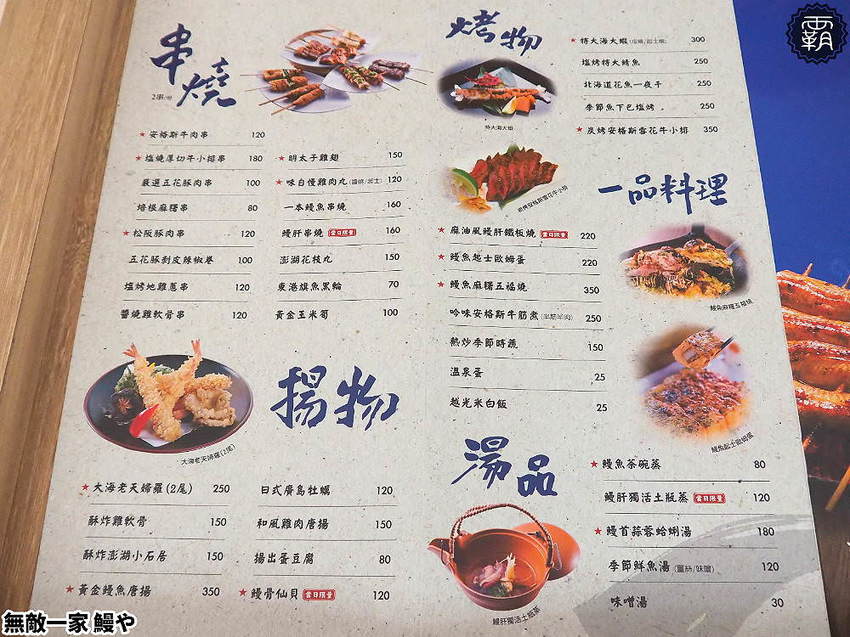 霸
串燒
2串/份
★安格斯牛肉串 120
★塩燒厚切牛小排串 180
嚴選五花豚肉串 100
培根麻糬串 80
★松阪豚肉串 120
五花豚剝皮辣椒卷 100
塩烤地雞蔥串 120
醬燒雞軟骨串 120
★明太子雞翅 150
★味自慢雞肉丸(醬燒/起士) 120
一本鰻魚串燒 160
鰻肝串燒 當日限量 160
澎湖花枝丸 150
東港旗魚黑輪 70
黃金玉米筍 100
烤物
特大海大蝦
★特大海大蝦(塩燒/起士燒) 300
塩烤特大鯖魚 250
北海道花魚一夜干 250
季節魚下巴塩烤 250
★炭烤安格斯雪花牛小排 350
炭烤安格斯雪花牛小排
一品料理
★麻油風鰻肝鐵板燒 當日限量 220
★鰻魚起士歐姆蛋 220
★鰻魚麻糬五福燒 350
吟味安格斯牛筋煮(半筋半肉) 250
熱炒季節時蔬 150
溫泉蛋 25
越光米白飯 25
鰻魚麻糬五福燒
鰻魚起士歐姆蛋
大海老天婦羅(2尾)
揚物
★大海老天婦羅(2尾) 250
酥炸雞軟骨 150
酥炸澎湖小石居 150
★黃金鰻魚唐揚 350
日式廣島牡蠣 120
和風雞肉唐揚 150
揚出蛋豆腐 80
★鰻骨仙貝 當日限量 120
湯品
鰻肝獨活土瓶蒸
★鰻魚茶碗蒸 80
鰻肝獨活土瓶蒸 當日限量 120
★鰻首蒜蓉蛤蜊湯 180
季節鮮魚湯(薑絲/味噌) 120
味噌湯 30
無敵一家 鰻や